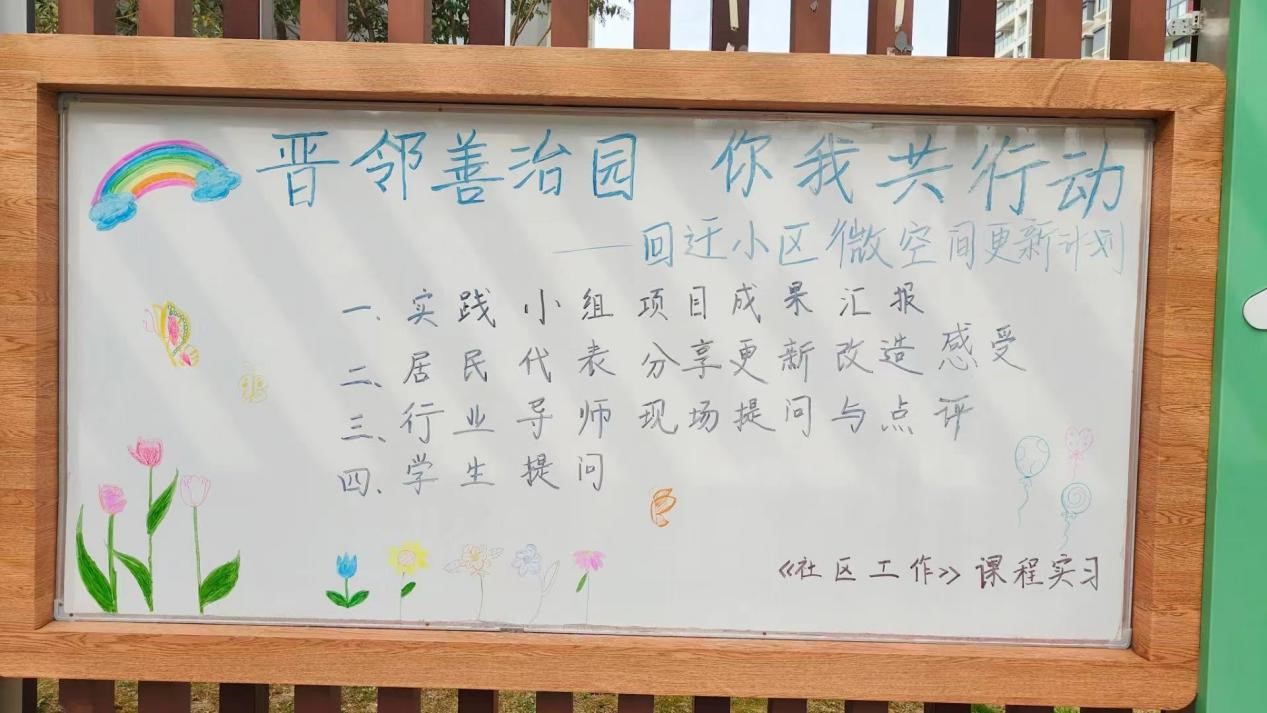 晋邻善治园 你我共行动
——回迁小区微空间更新计划
一、实践小组项目成果汇报
二、居民代表分享更新改造感受
三、行业导师现场提问与点评
四、学生提问
《社区工作》课程实习